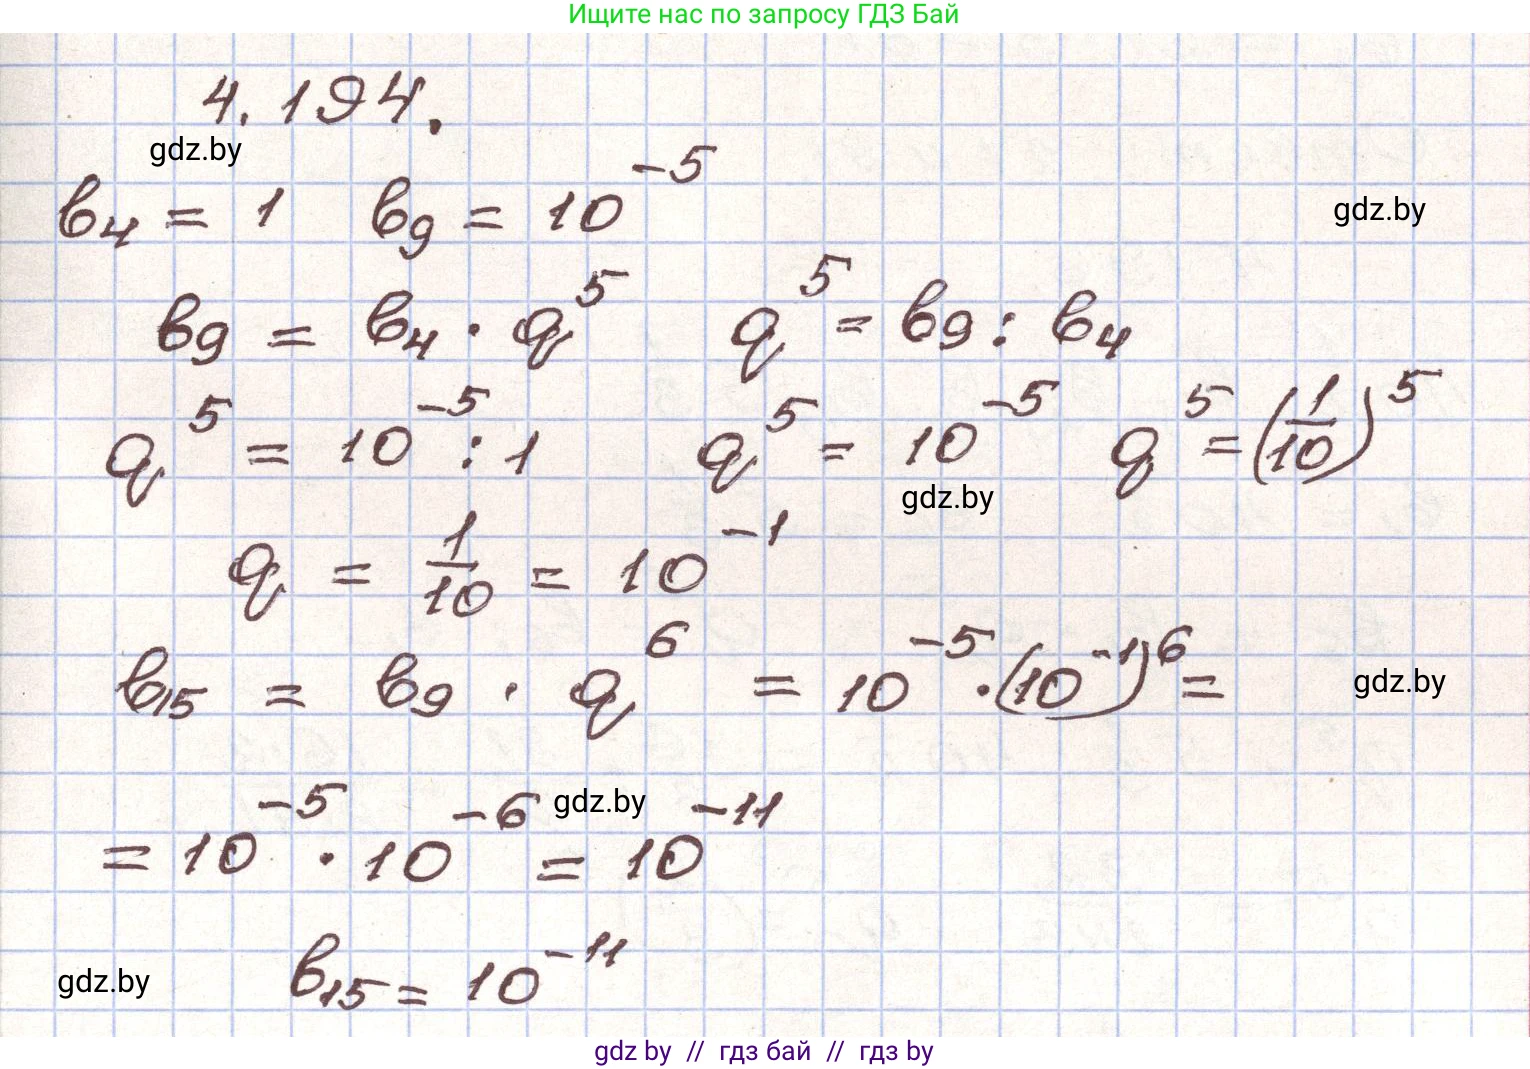 Ищите нас по запросу ГДЗ Бай
4.194.
gdz.by
b₄ = 1 b₉ = 10⁻⁵
gdz.by
b₉ = b₄ · q⁵ q⁵ = b₉ : b₄
q⁵ = 10⁻⁵ : 1 q⁵ = 10⁻⁵ q⁵ = (1/10)⁵
gdz.by
q = 1/10 = 10⁻¹
b₁₅ = b₉ · q⁶ = 10⁻⁵ · (10⁻¹)⁶ =
gdz.by
gdz.by
= 10⁻⁵ · 10⁻⁶ = 10⁻¹¹
gdz.by
b₁₅ = 10⁻¹¹
gdz by // гдз бай // гдз by